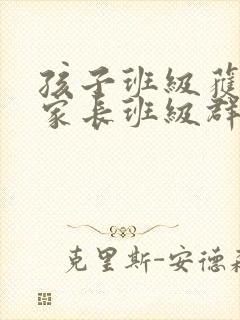 孩子班級
家長班級群
克里斯-安德森